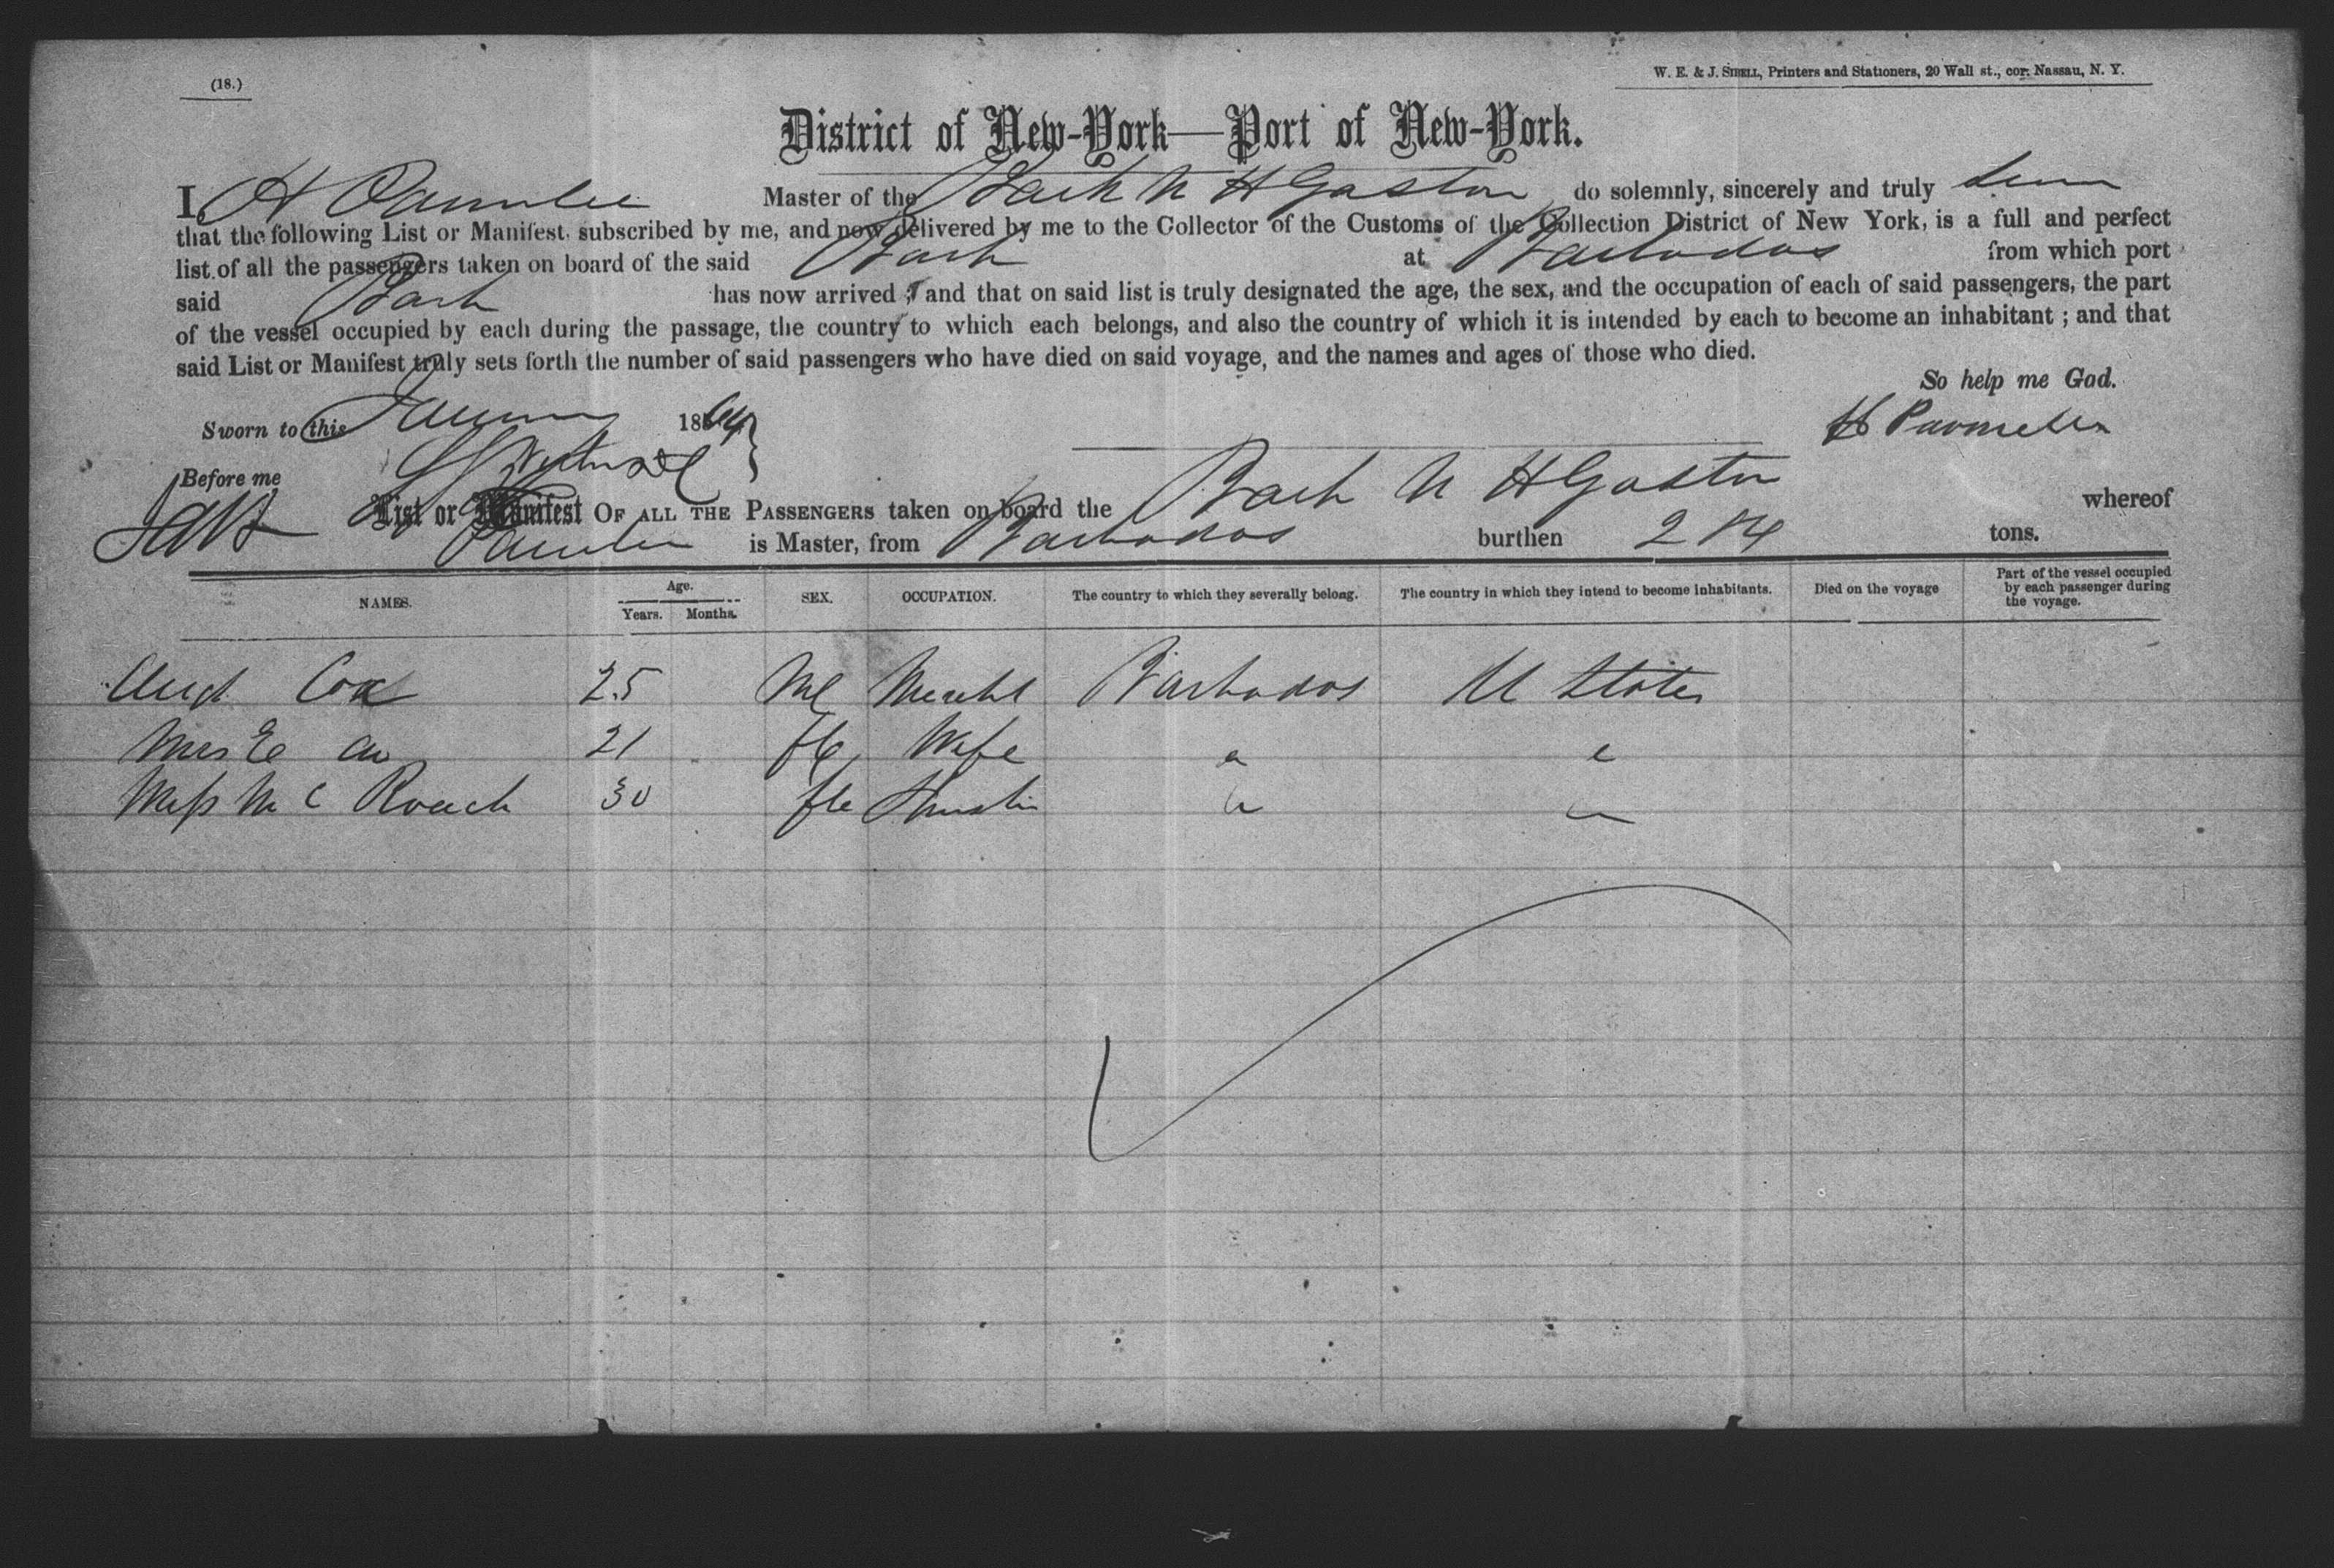 (18.)
W. E. & J. SIBELL, Printers and Stationers, 20 Wall st., cor. Nassau, N. Y.
District of New-York—Port of New-York.
I, H Parmlee Master of the Bark N H Gaston do solemnly, sincerely and truly swear
that the following List or Manifest, subscribed by me, and now delivered by me to the Collector of the Customs of the Collection District of New York, is a full and perfect
list of all the passengers taken on board of the said Bark at Barbados from which port
said Bark has now arrived; and that on said list is truly designated the age, the sex, and the occupation of each of said passengers, the part
of the vessel occupied by each during the passage, the country to which each belongs, and also the country of which it is intended by each to become an inhabitant; and that
said List or Manifest truly sets forth the number of said passengers who have died on said voyage, and the names and ages of those who died.
So help me God.
Sworn to this 1864
H Parmelee
Before me
List or Manifest OF ALL THE PASSENGERS taken on board the Bark N H Gaston whereof
Parmlee is Master, from Barbados burthen 214 tons.
NAMES. Age. Years. Months. SEX. OCCUPATION. The country to which they severally belong. The country in which they intend to become inhabitants. Died on the voyage Part of the vessel occupied by each passenger during the voyage.
Cox 25 Ml Mercht Barbados U States
Mrs E do 21 fle Wife " "
Miss M C Roach 30 fle " "